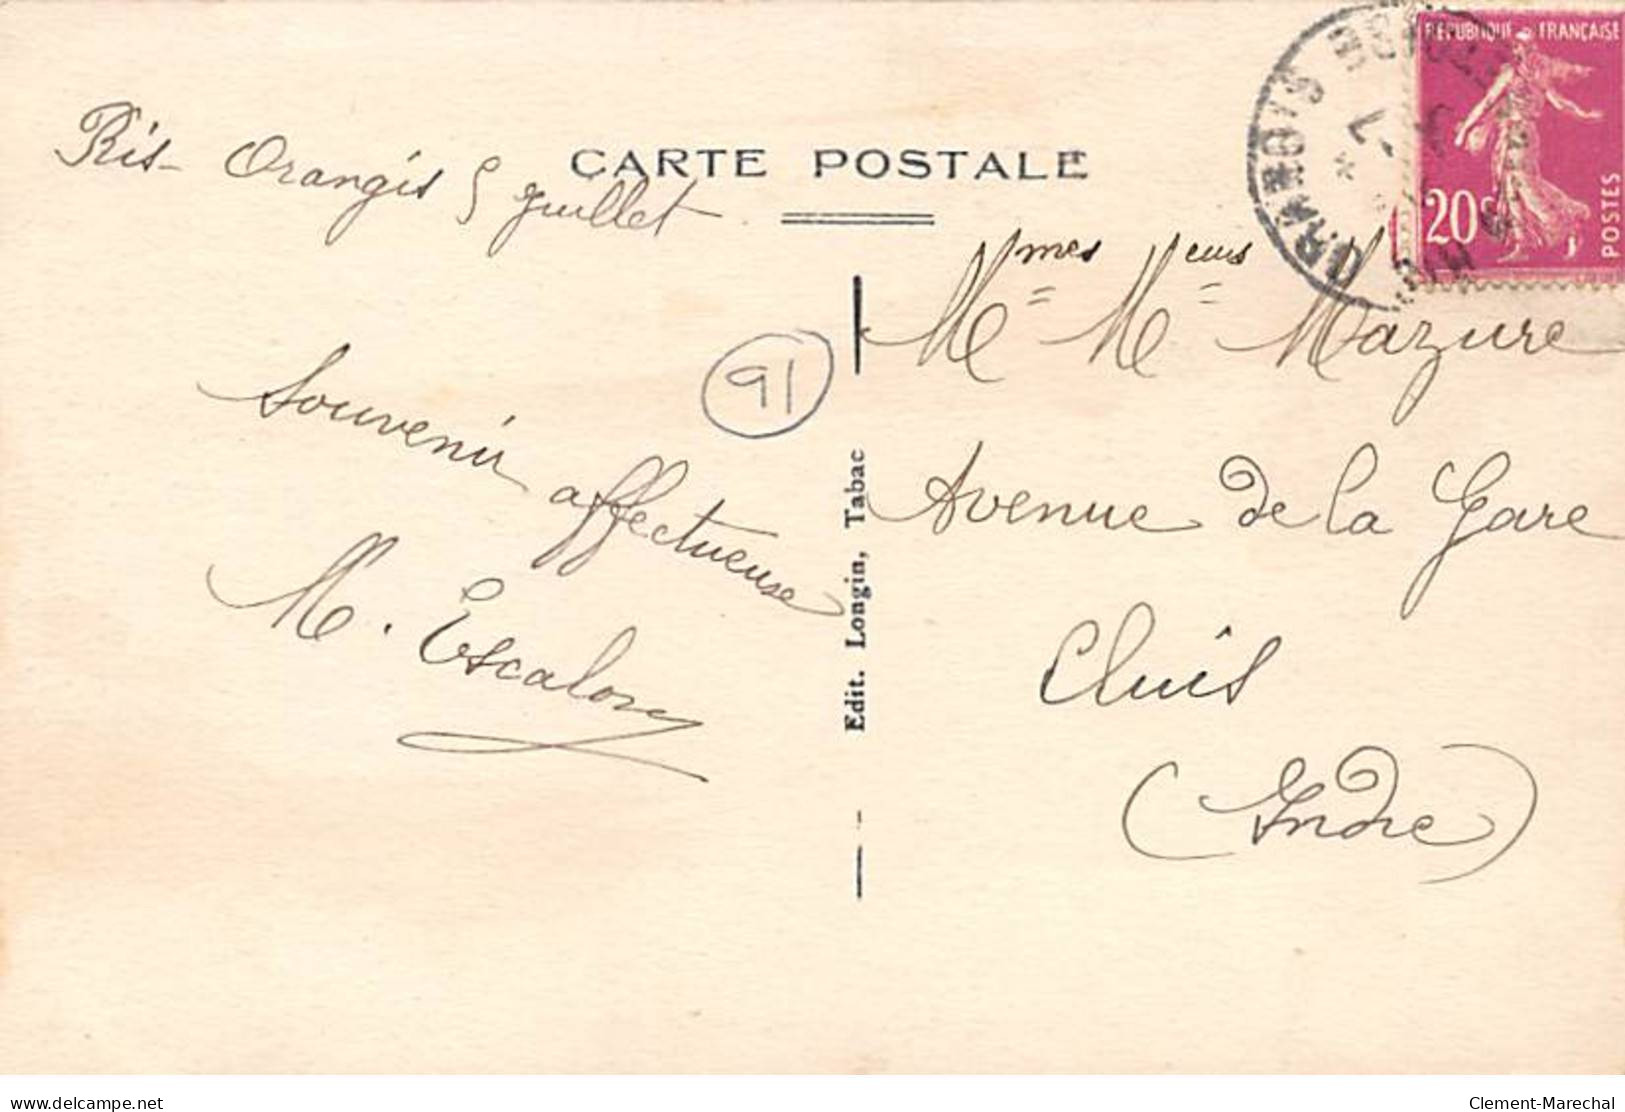 RÉPUBLIQUE FRANÇAISE
20c
POSTES
CARTE POSTALE
Ris-Orangis 5 Juillet
Souvenir affectueuse
M. Escalon
91
Edit. Longin, Tabac
Mmes Meurs Mazure
Avenue de la Gare
Cluis
(Indre)
delcampe.net
Clement-Marechal